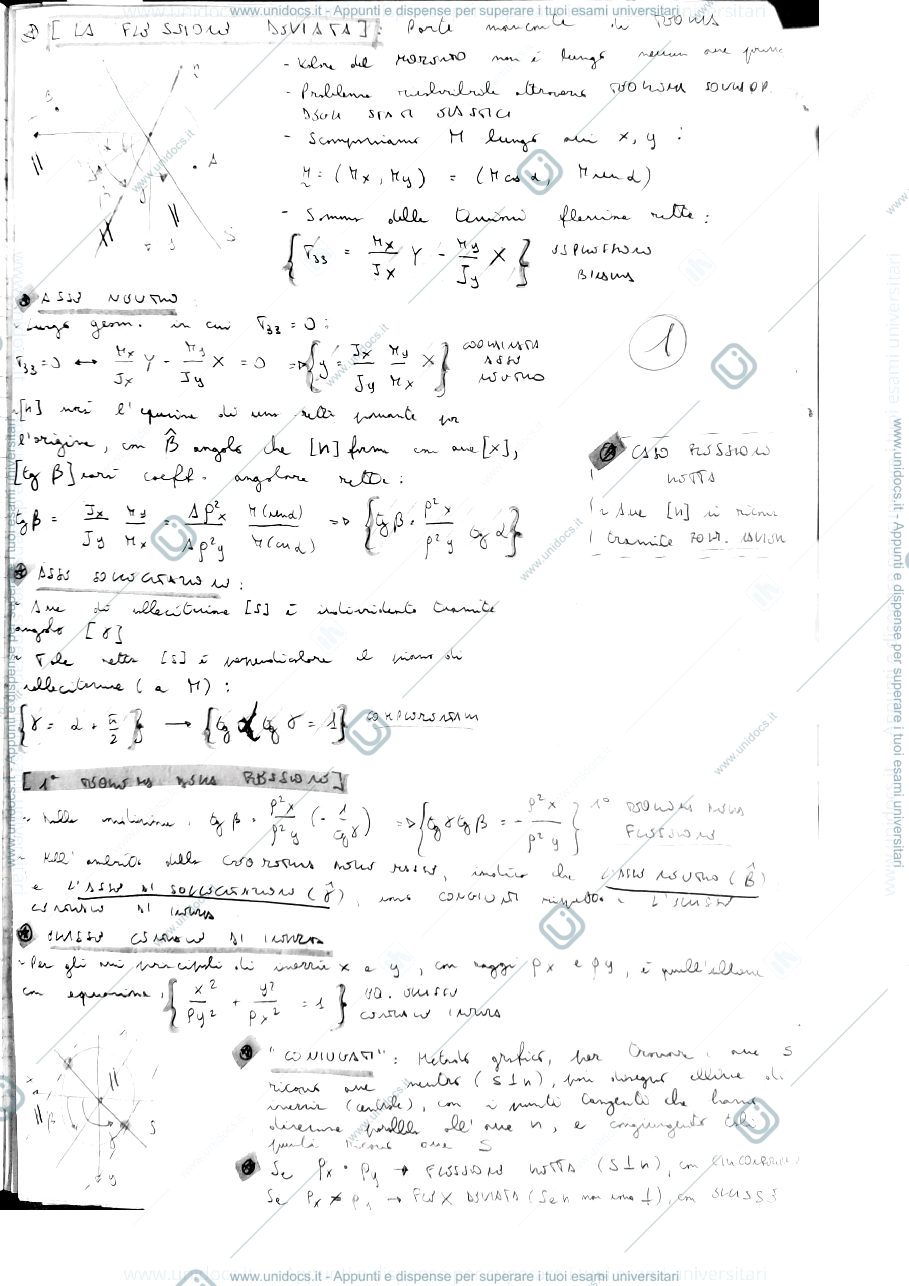 www.unidocs.it - Appunti e dispense per superare i tuoi esami universitari
[LA FLESSIONE DEVIATA]: Parte mancante di TEORIA
- Valore del MOMENTO non è lungo nessun asse princ
- Problema risolvibile attraverso
DEGLI STATI ELASTICI
- Scomponiamo M lungo assi x, y :
M = (Mx, My) = (M cos α, M sen α)
- Somma delle tensioni flessione retta:
{ σ33 = Mx/Jx Y - My/Jy X } ESPRESSIONE
BINOMIA
ASSE NEUTRO
- Luogo geom. in cui σ33 = 0 :
σ33 = 0 ↔ Mx/Jx Y - My/Jy X = 0 ⇒ { y = Jx/Jy My/Mx X }
ASSE
NEUTRO
1
- [n] sarà l'equazione di una retta passante per
l'origine, con β̂ angolo che [n] forma con asse [x],
[tg β] sarà coeff. angolare retta :
tg β = Jx/Jy My/Mx = Aρ²x/Aρ²y M(sen α)/M(cos α) ⇒ { tg β = ρ²x/ρ²y tg α }
CASO FLESSIONE
RETTA
- Asse [n] si ricava
tramite
ASSE SOLLECITAZIONE :
- Asse di sollecitazione [S] è individuato tramite
angolo [γ]
- Tale retta [S] è perpendicolare al piano di
sollecitazione ( a M) :
{ γ = α + π/2 } → { tg α tg γ = 1 }
[1° TEOREMA DELLA FLESSIONE]
- Nella relazione : tg β = ρ²x/ρ²y (- 1/tg γ) ⇒ { tg γ tg β = - ρ²x/ρ²y } 1° TEOREMA DELLA
FLESSIONE
- Nell'ambito della GEOMETRIA DELLE MASSE, indica che L'ASSE NEUTRO (β̂)
e L'ASSE DI SOLLECITAZIONE (γ̂), sono CONIUGATI rispetto a L'ELLISSE
CENTRALE DI INERZIA
ELLISSE CENTRALE DI INERZIA
- Per gli assi principali di inerzia x e y, con raggi ρx e ρy, è quell'ellisse
con equazione, { x²/ρy² + y²/ρx² = 1 } EQ. ELLISSE
CENTRALE INERZIA
"CONIUGATI": Metodo grafico, per trovare asse S
ricavo asse neutro (S⊥n), poi disegno ellisse di
inerzia (centrale), con i punti tangenti che hanno
direzione parallela all'asse n, e congiungendo tali
punti ricavo asse S
Se ρx = ρy → FLESSIONE RETTA (S⊥n), con CIRCONFEREN
Se ρx ≠ ρy → FLEX DEVIATA (S e n non sono ⊥), con ELLISSE
www.unidocs.it - Appunti e dispense per superare i tuoi esami universitari